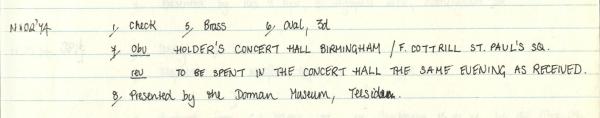 N1092'74 1, Check 5, Brass 6, Oval, 3d
7, Obv HOLDER'S CONCERT HALL BIRMINGHAM / F. COTTRILL ST. PAUL'S SQ.
rev TO BE SPENT IN THE CONCERT HALL THE SAME EVENING AS RECEIVED.
8, Presented by the Dorman Museum, Teesside.